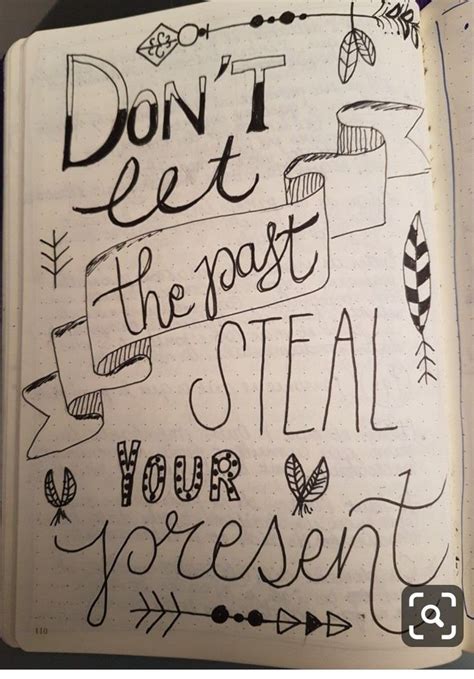 DON'T
let
the past
STEAL
YOUR
present
110